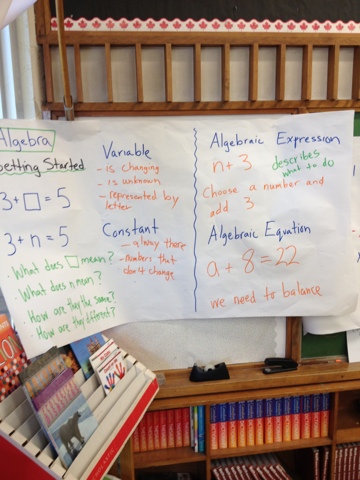 Algebra
Getting Started
3+□=5
3+n=5
- What does □ mean?
- What does n mean?
- How are they the same?
- How are they different?
Variable
- is changing
- is unknown
- represented by
letter
Constant
- always there
- numbers that
don't change
Algebraic Expression
n+3
describes
what to do
Choose a number and
add 3
Algebraic Equation
a+8=22
we need to balance